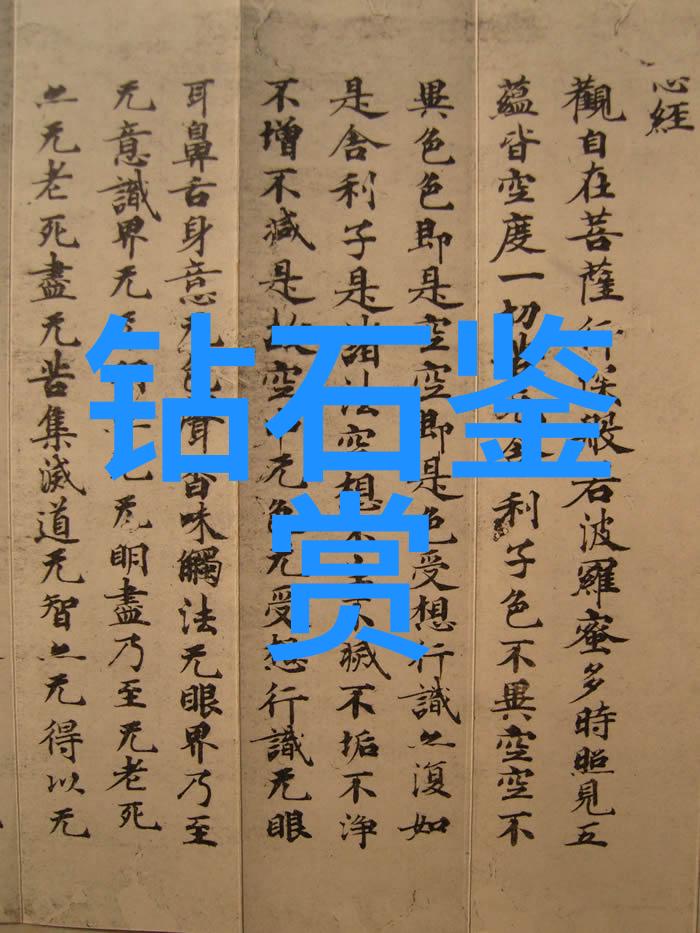 心經
觀自在菩薩行深般若波羅蜜多時照見五
蘊皆空度一切利子色不異空空不
異色色即是空空即是色受想行識亦復如
是舍利子是諸法空想不生不滅不垢不淨
不增不減是故空中无色无受想行識无眼
耳鼻舌身意无色聲香味觸法无眼界乃至
无意識界无无明盡乃至无老死
亦无老死盡无苦集滅道无智亦无得以无
钻石鉴
赏